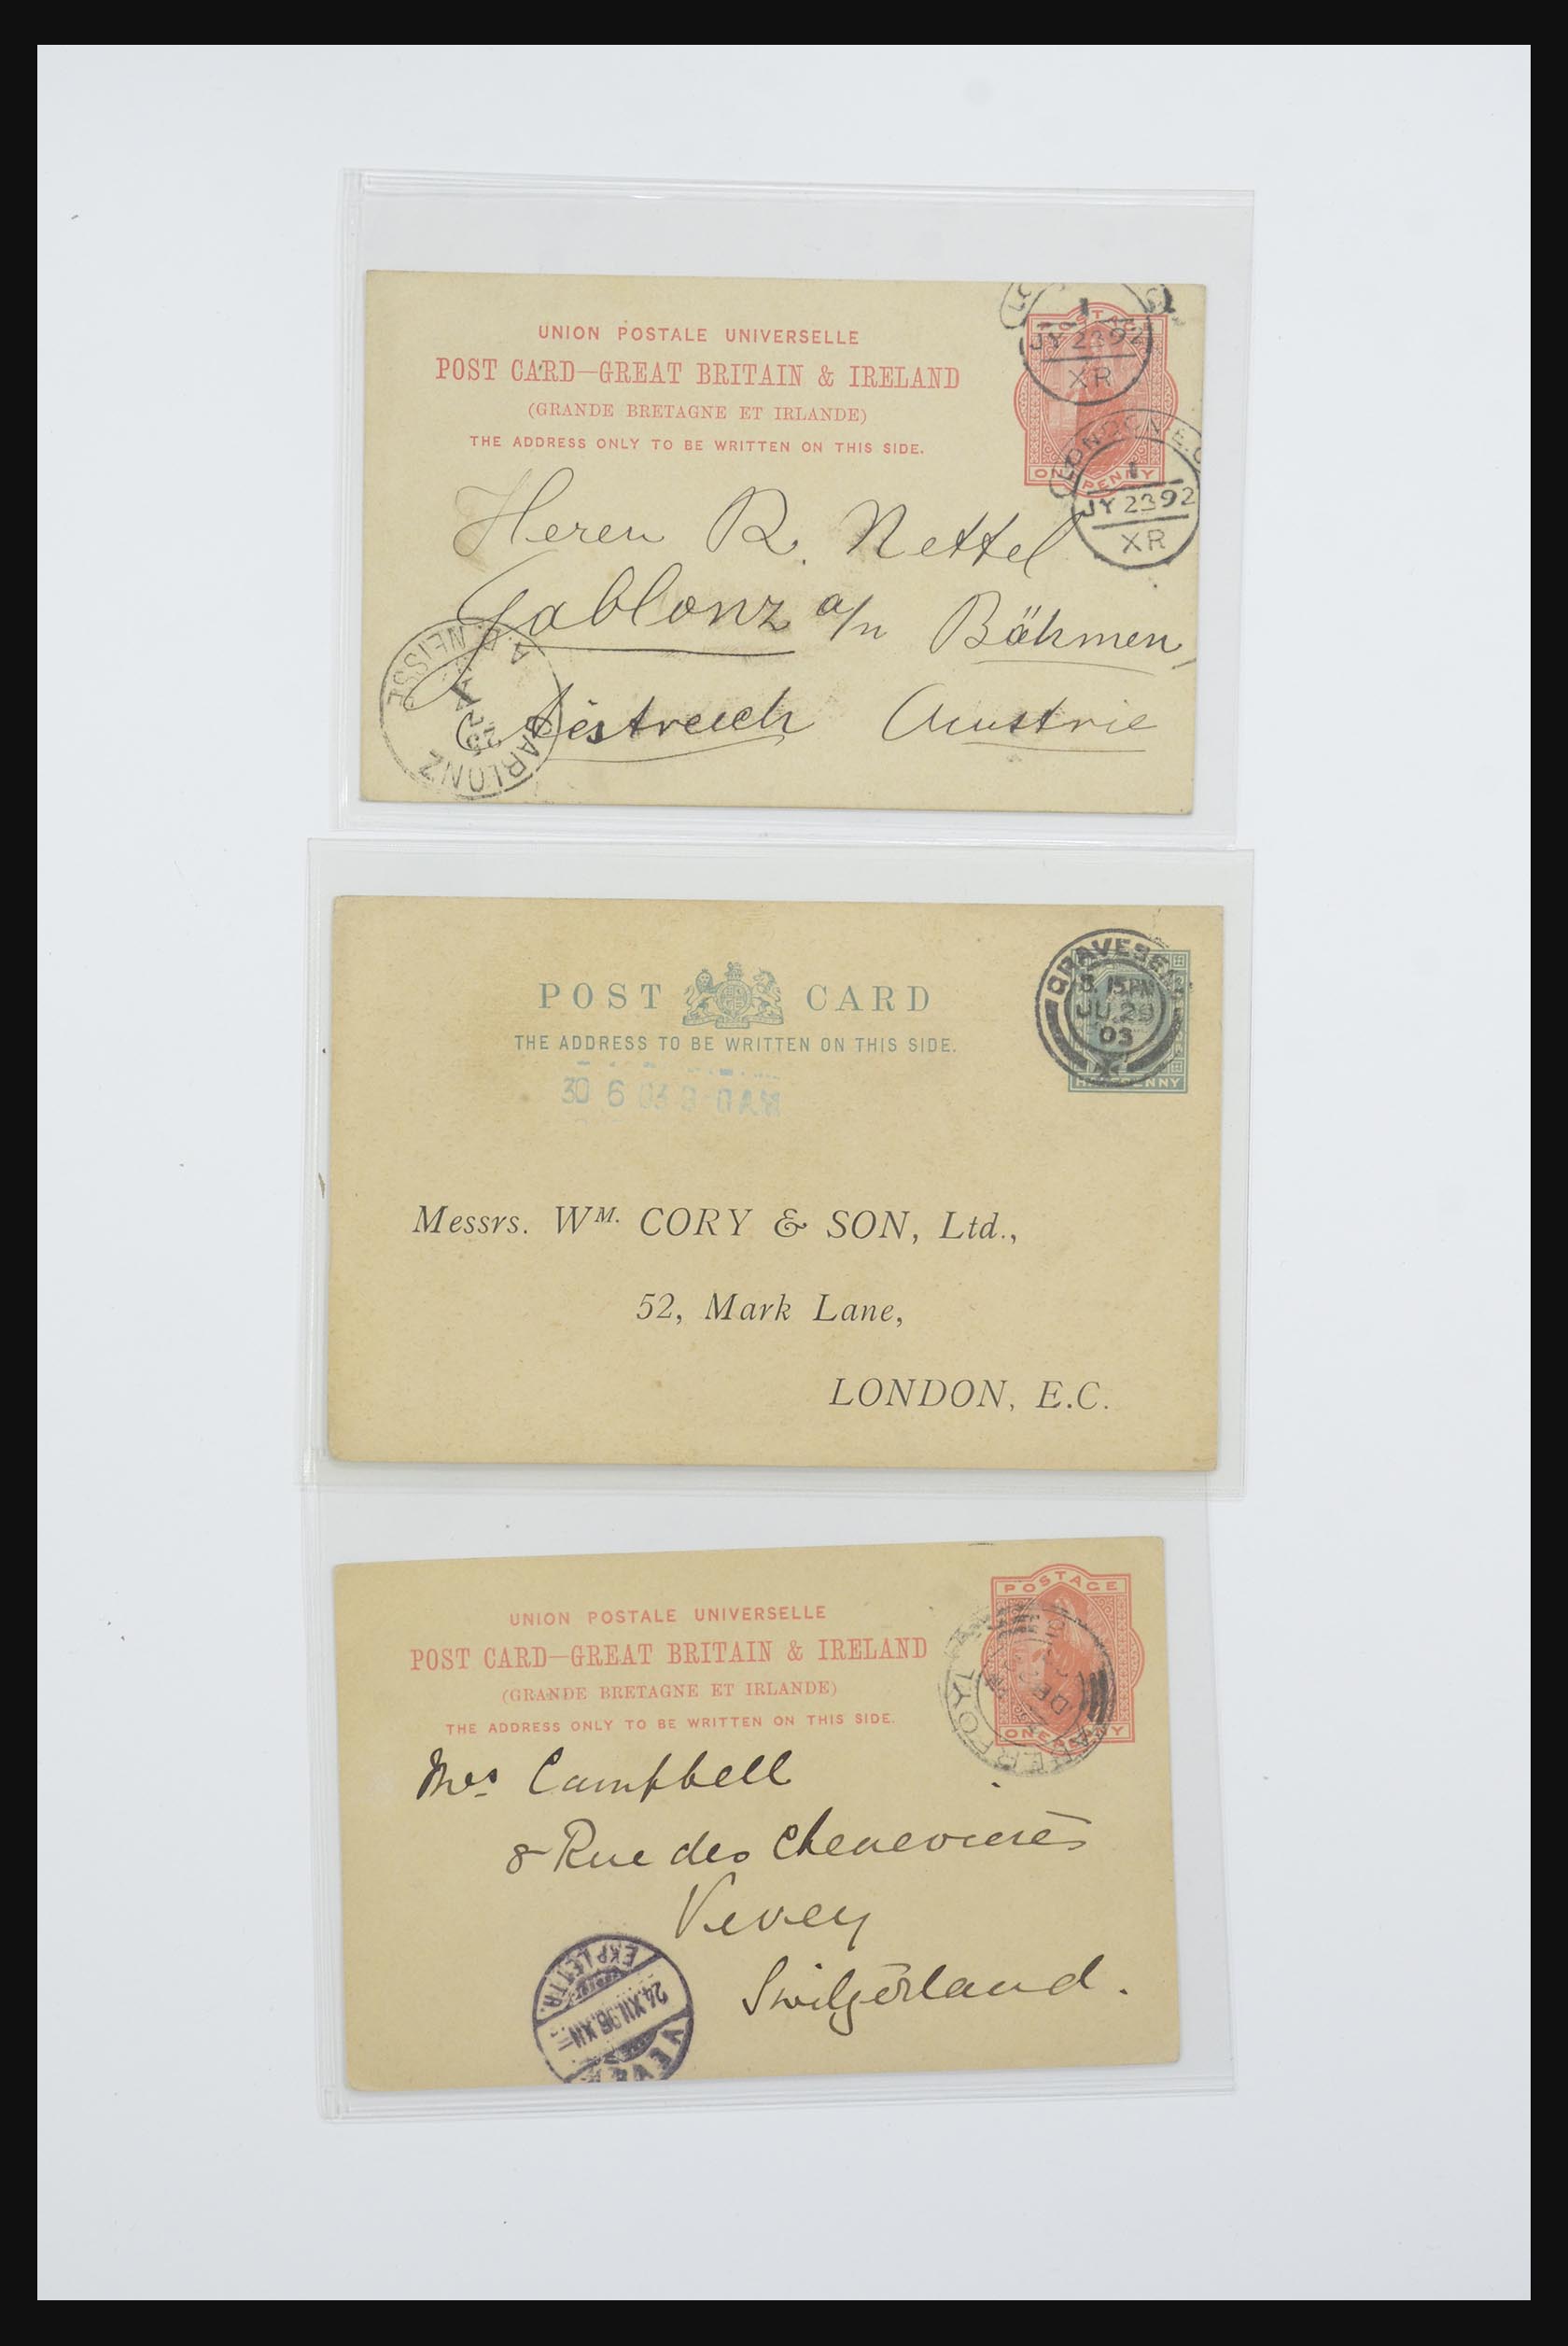 UNION POSTALE UNIVERSELLE
POST CARD—GREAT BRITAIN & IRELAND
(GRANDE BRETAGNE ET IRLANDE)
THE ADDRESS ONLY TO BE WRITTEN ON THIS SIDE.
POSTAGE
ONE PENNY
1
JY 23 92
XR
LONDON E.C
1
JY 23 92
XR
Heren R. Nettel
Gablonz a/n Böhmen,
Oestreich Austrie
GABLONZ
A.D. NEISSE
25
POST CARD
THE ADDRESS TO BE WRITTEN ON THIS SIDE.
GRAVESEND
8.15PM
JU 29
03
X
HALFPENNY
30 6 03 9 0 AM
Messrs. WM. CORY & SON, Ltd.,
52, Mark Lane,
LONDON, E.C.
UNION POSTALE UNIVERSELLE
POST CARD—GREAT BRITAIN & IRELAND
(GRANDE BRETAGNE ET IRLANDE)
THE ADDRESS ONLY TO BE WRITTEN ON THIS SIDE.
POSTAGE
ONE PENNY
ABERFOYL
DE
Mrs Campbell
8 Rue des Chenevieres
Vevey
Switzerland.
VEVEY
24.XII.96.XII
EXP. LETTR.